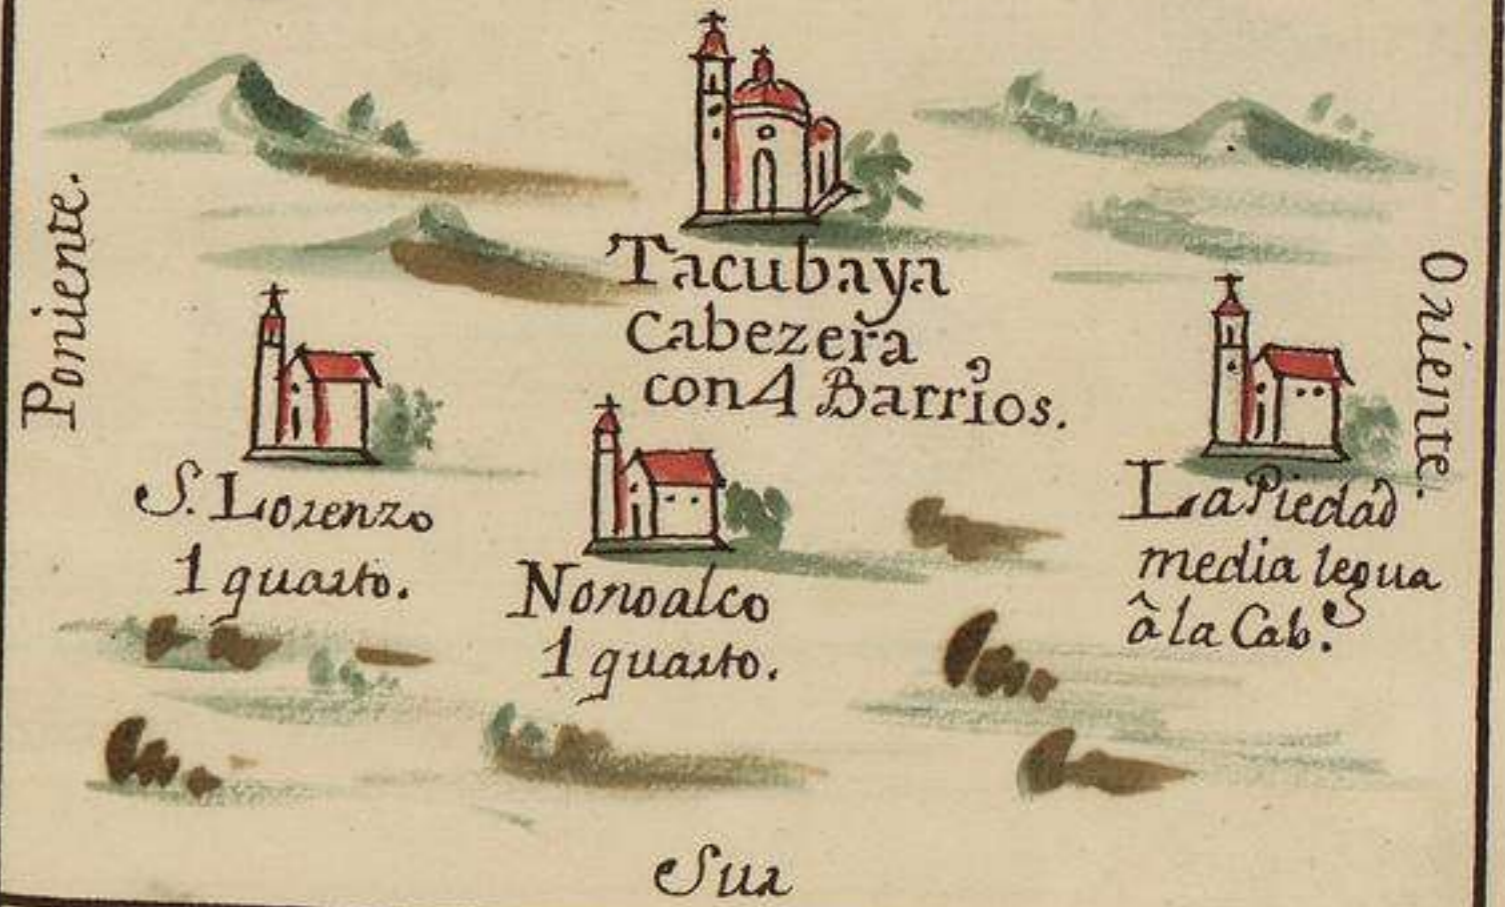 Poniente.
Tacubaya
Cabezera
con 4 Barrios.
Oriente.
S. Lorenzo
1 quarto.
Nonoalco
1 quarto.
La Piedad
media legua
â la Cab.ᵃ
Sur